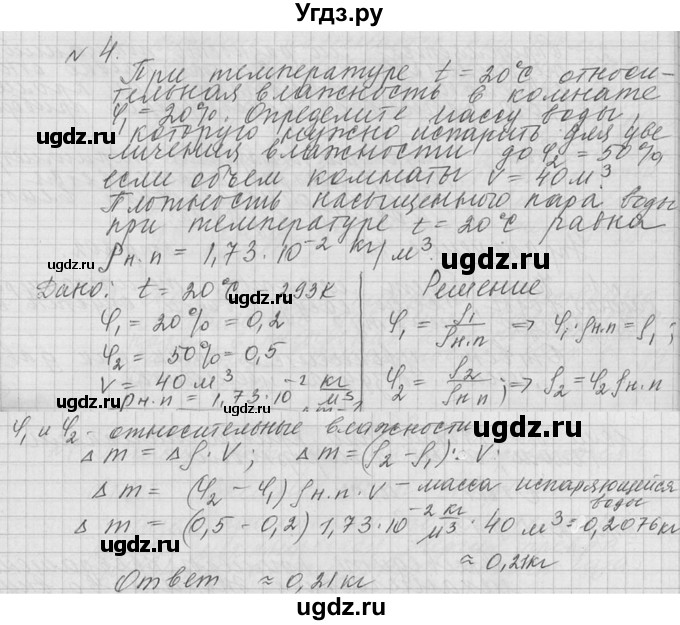 Угдз.ру
N 4.
При температуре t = 20°C относи-
тельная влажность в комнате
φ₁ = 20%. Определите массу воды,
которую нужно испарить для уве
личения влажности до φ₂ = 50%
если объем комнаты V = 40 м³
Плотность насыщенного пара воды
при температуре t = 20°C равна
ρн.п = 1,73·10⁻² кг/м³.
Дано: t = 20°C 293К
Решение
φ₁ = 20% = 0,2
φ₁ = ρ₁/ρн.п => φ₁·ρн.п = ρ₁;
φ₂ = 50% = 0,5
φ₂ = ρ₂/ρн.п; => ρ₂ = φ₂ρн.п
V = 40 м³
ρн.п = 1,73·10⁻² кг/м³
φ₁ и φ₂ - относительные влажности
Δm = Δρ·V; Δm = (ρ₂ - ρ₁)·V.
Δm = (φ₂ - φ₁)ρн.п·V - масса испаряющейся воды
Δm = (0,5 - 0,2) 1,73·10⁻² кг/м³ · 40 м³ = 0,2076кг
≈ 0,21кг
Ответ ≈ 0,21кг
udgz.ru